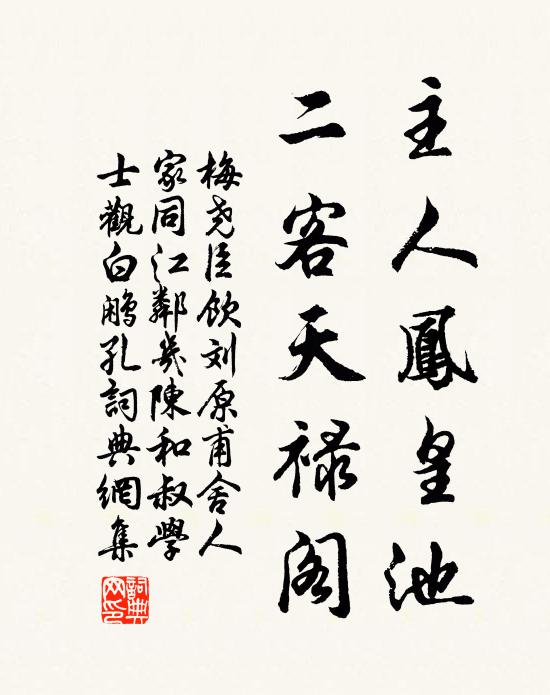 主人鳳皇池
二客天禄阁
梅尧臣飲刘原甫舍人
家同江鄰幾陳和叔學
士觀白鷴孔詞典網集
詞典网印